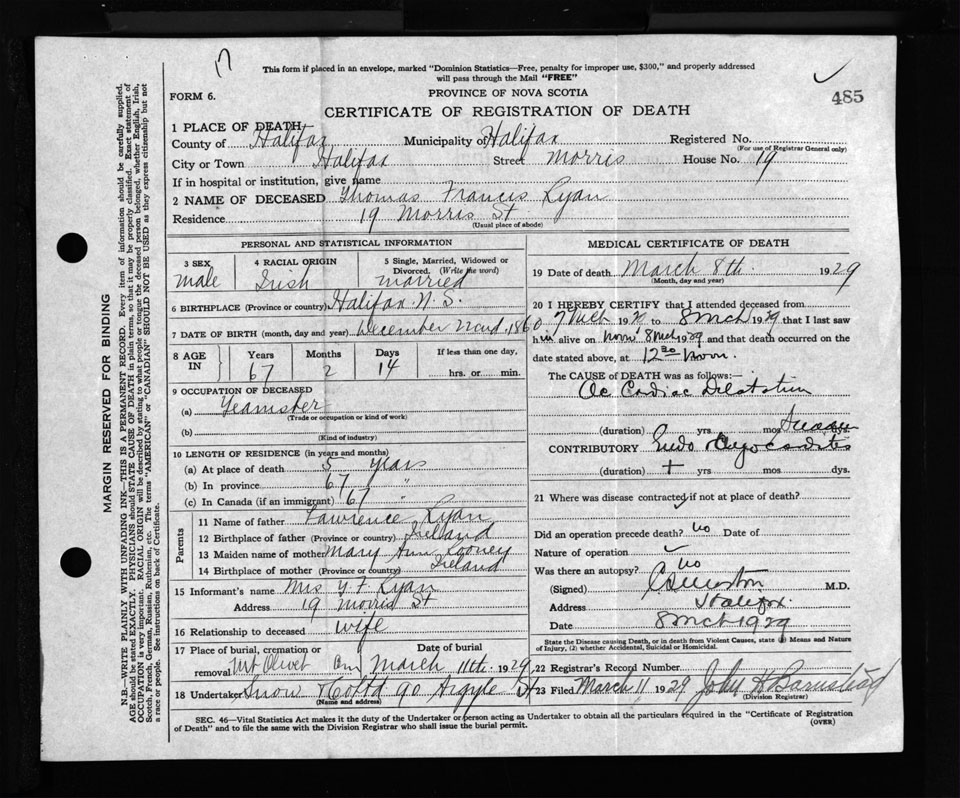 This form if placed in an envelope, marked "Dominion Statistics—Free, penalty for improper use, $300," and properly addressed
will pass through the Mail "FREE"
FORM 6.
PROVINCE OF NOVA SCOTIA
485
CERTIFICATE OF REGISTRATION OF DEATH
1 PLACE OF DEATH
County of Halifax Municipality of Halifax Registered No.
(For use of Registrar General only)
City or Town Halifax Street Morris House No. 19
If in hospital or institution, give name
2 NAME OF DECEASED Thomas Francis Ryan
Residence 19 Morris St
(Usual place of abode)
PERSONAL AND STATISTICAL INFORMATION
3 SEX
male
4 RACIAL ORIGIN
Irish
5 Single, Married, Widowed or
Divorced. (Write the word)
married
6 BIRTHPLACE (Province or country) Halifax N.S.
7 DATE OF BIRTH (month, day and year) December 22nd. 1860
8 AGE IN
Years
67
Months
2
Days
14
If less than one day,
hrs. or min.
9 OCCUPATION OF DECEASED
(a) Teamster
(Trade or occupation or kind of work)
(b)
(Kind of industry)
10 LENGTH OF RESIDENCE (in years and months)
(a) At place of death 5 years
(b) In province 67 "
(c) In Canada (if an immigrant) 67 "
Parents
11 Name of father Lawrence Ryan
12 Birthplace of father (Province or country) Ireland
13 Maiden name of mother Mary Ann Rooney
14 Birthplace of mother (Province or country) Ireland
15 Informant's name Mrs T. F. Ryan
Address 19 Morris St
16 Relationship to deceased wife
17 Place of burial, cremation or Date of burial
removal Mt Olivet Cem March 11th. 1929
18 Undertaker Snow & Co Ltd 90 Argyle St
(Name and address)
MEDICAL CERTIFICATE OF DEATH
19 Date of death March 8th. 1929
(Month, day and year)
20 I HEREBY CERTIFY that I attended deceased from
7 Mch 192 to 8 Mch 1929 that I last saw
him alive on noon 8 Mch 1929 and that death occurred on the
date stated above, at 12 30 noon.
The CAUSE OF DEATH was as follows:—
Ac Cardiac Dilatation
(duration) yrs mos
CONTRIBUTORY Endo Myocarditis
(duration) + yrs mos. dys.
21 Where was disease contracted if not at place of death?
Did an operation precede death? no Date of
Nature of operation
Was there an autopsy? no
(Signed) M.D.
Address Halifax.
Date 8 Mch 1929
State the Disease causing Death, or in death from Violent Causes, state (1) Means and Nature
of Injury, (2) whether Accidental, Suicidal or Homicidal.
22 Registrar's Record Number
23 Filed March 11 1929 John H Barnstead
(Division Registrar)
SEC. 46—Vital Statistics Act makes it the duty of the Undertaker or person acting as Undertaker to obtain all the particulars required in the "Certificate of Registration
of Death" and to file the same with the Division Registrar who shall issue the burial permit.
(OVER)
MARGIN RESERVED FOR BINDING
N.B.—WRITE PLAINLY WITH UNFADING INK—THIS IS A PERMANENT RECORD. Every item of information should be carefully supplied.
AGE should be stated EXACTLY. PHYSICIANS should STATE CAUSE OF DEATH in plain terms, so that it may be properly classified. Exact statement of
OCCUPATION is very important. RACIAL ORIGIN will be described by stating to what people or tongue the deceased person belonged, whether English, Irish,
Scotch, French, German, Russian, Ruthenian, etc. The terms "AMERICAN" or "CANADIAN" SHOULD NOT BE USED as they express citizenship but not
a race or people. See instructions on back of Certificate.